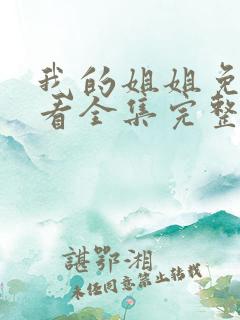 我的姐姐免
看全集完整
谌鄂湘
未经同意禁止转载